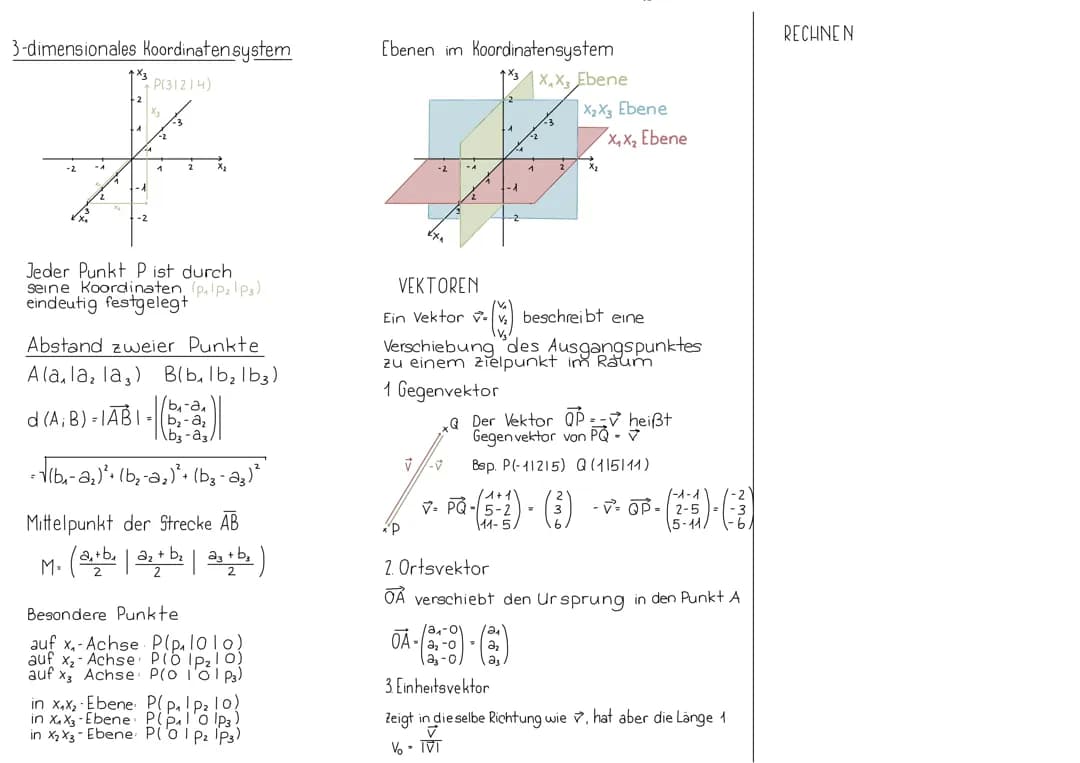 3-dimensionales Koordinatensystem
x₃
P(3|2|4)
2
x₃
1
-3
-2
-1
-2
-1
1
2
x₂
1
2
3
-1
-2
x₁
x₂
Jeder Punkt P ist durch
seine Koordinaten (p₁|p₂|p₃)
eindeutig festgelegt
Abstand zweier Punkte
A(a₁|a₂|a₃) B(b₁|b₂|b₃)
d(A;B) = |AB⃗| = |(b₁-a₁
b₂-a₂
b₃-a₃)|
= √(b₁-a₂)² + (b₂-a₂)² + (b₃-a₃)²
Mittelpunkt der Strecke A̅B̅
M = (a₁+b₁/2 | a₂+b₂/2 | a₃+b₃/2)
Besondere Punkte
auf x₁-Achse: P(p₁|0|0)
auf x₂-Achse: P(0|p₂|0)
auf x₃ Achse: P(0|0|p₃)
in x₁x₂-Ebene: P(p₁|p₂|0)
in x₁x₃-Ebene: P(p₁|0|p₃)
in x₂x₃-Ebene: P(0|p₂|p₃)
Ebenen im Koordinatensystem
x₃
x₁x₃ Ebene
x₂x₃ Ebene
x₁x₂ Ebene
2
1
-3
-2
-1
-2
-1
1
2
x₂
1
2
3
-1
2
x₁
VEKTOREN
Ein Vektor v⃗ = (v₁ v₂ v₃) beschreibt eine
Verschiebung des Ausgangspunktes
zu einem Zielpunkt im Raum
1 Gegenvektor
Q Der Vektor QP⃗ = -v⃗ heißt
Gegenvektor von PQ⃗ = v⃗
v⃗ -v⃗ Bsp. P(-1|2|5) Q(1|5|11)
v⃗ = PQ⃗ = (1+1 5-2 11-5) = (2 3 6) -v⃗ = QP⃗ = (-1-1 2-5 5-11) = (-2 -3 -6)
P
2. Ortsvektor
OA⃗ verschiebt den Ursprung in den Punkt A
OA⃗ = (a₁-0 a₂-0 a₃-0) = (a₁ a₂ a₃)
3. Einheitsvektor
zeigt in dieselbe Richtung wie v⃗, hat aber die Länge 1
v₀ = v⃗/|v⃗|
RECHNEN